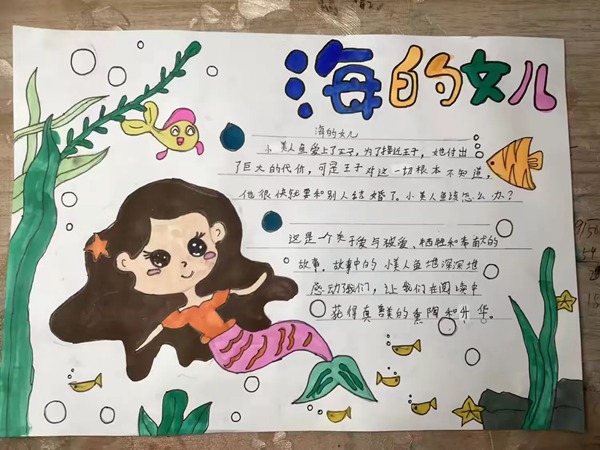 海的女儿
海的女儿
小美人鱼爱上了王子,为了接近王子,她付出
了巨大的代价,可是王子对这一切根本不知道,
他很快就要和别人结婚了。小美人鱼该怎么办?
这是一个关于爱与被爱、牺牲和奉献的
故事,故事中的小美人鱼地深深地
感动了我们,让我们在阅读中
获得真善美的熏陶和升华。